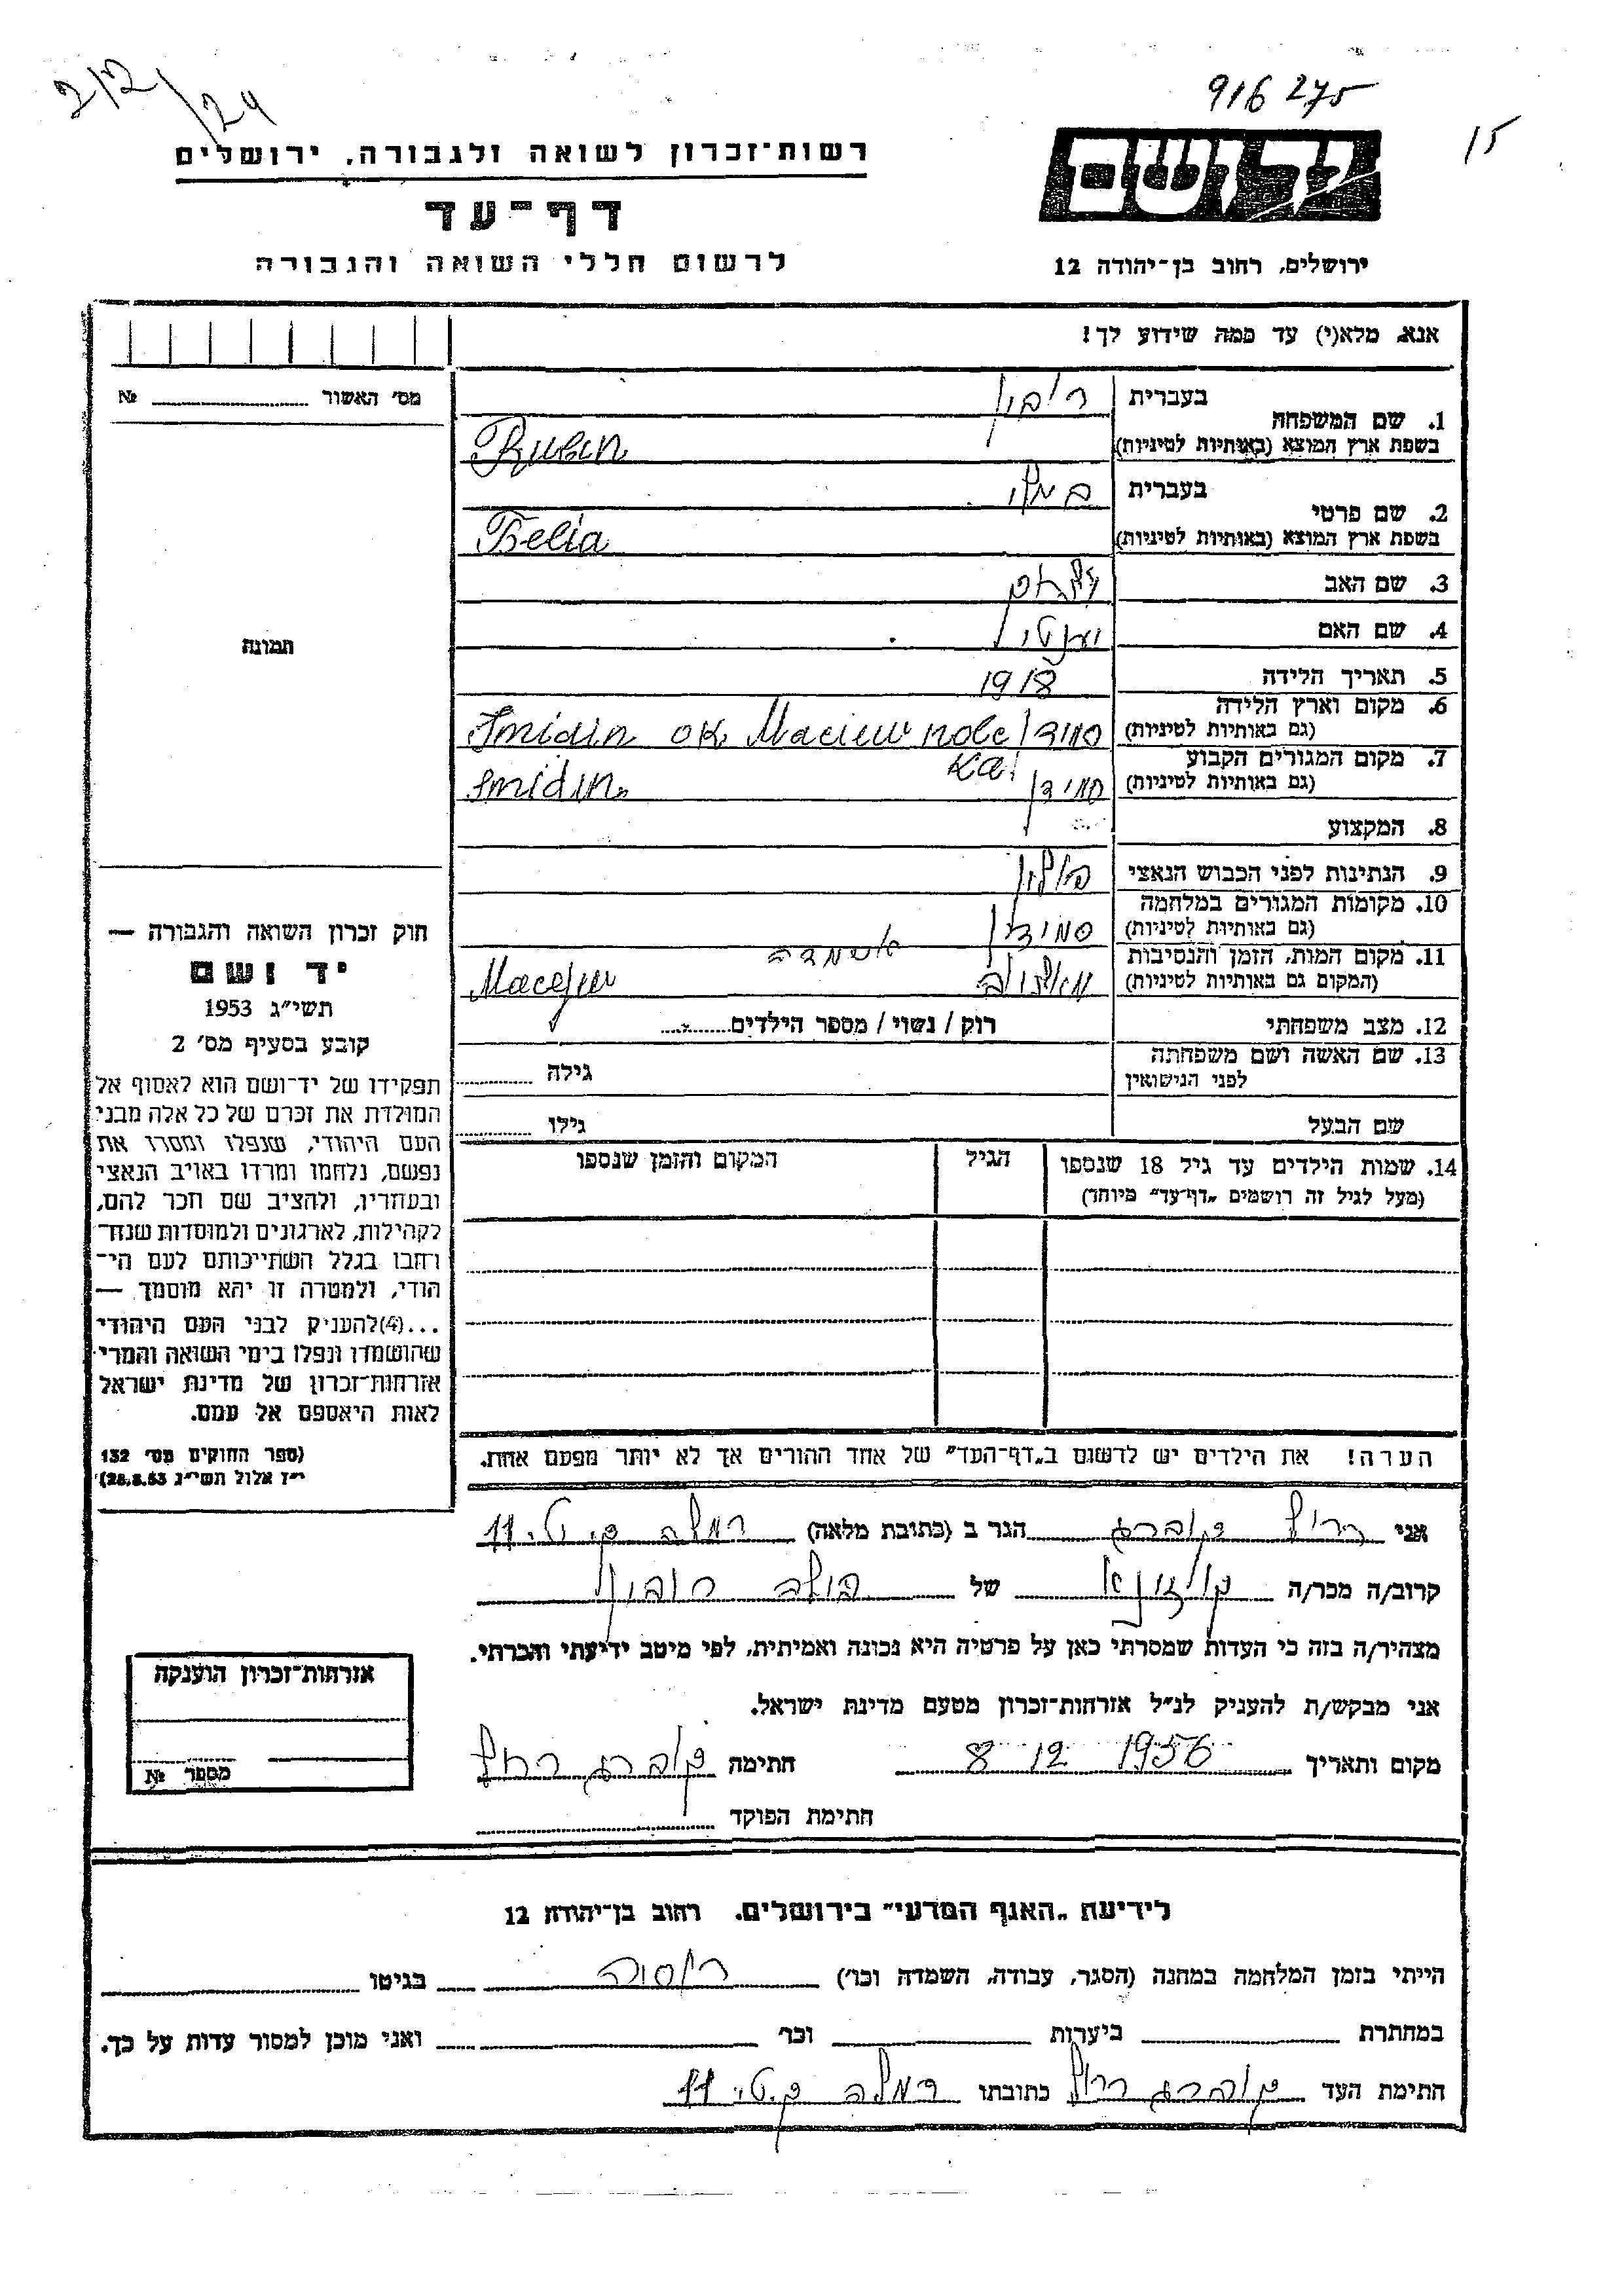 2/2/24
916 275
15
רשות־זכרון לשואה ולגבורה, ירושלים
יד ושם
דף־עד
לרשום חללי השואה והגבורה
ירושלים, רחוב בן־יהודה 12
אנא, מלא(י) עד כמה שידוע לך!
מס׳ האשור № 
1. שם המשפחה
בעברית רובין
בשפת ארץ המוצא (באותיות לטיניות) Ruben
2. שם פרטי
בעברית
בשפת ארץ המוצא (באותיות לטיניות) Belia
3. שם האב
4. שם האם
5. תאריך הלידה 1918
6. מקום וארץ הלידה
(גם באותיות לטיניות) סמידין Smidin ok Maciew
7. מקום המגורים הקבוע
(גם באותיות לטיניות) סמידין Smidin
8. המקצוע
9. הנתינות לפני הכבוש הנאצי פולין
10. מקומות המגורים במלחמה
(גם באותיות לטיניות) סמידין
11. מקום המות, הזמן והנסיבות
(המקום גם באותיות לטיניות) Macejew
12. מצב משפחתי רוק / נשוי / מספר הילדים
13. שם האשה ושם משפחתה
לפני הנישואין גילה
שם הבעל גילו
14. שמות הילדים עד גיל 18 שנספו הגיל המקום והזמן שנספו
(מעל לגיל זה רושמים „דף־עד״ מיוחד)
הערה! את הילדים יש לרשום ב„דף־העד״ של אחד ההורים אך לא יותר מפעם אחת.
תמונה
חוק זכרון השואה והגבורה —
יד ושם
תשי״ג 1953
קובע בסעיף מס׳ 2
תפקידו של יד־ושם הוא לאסוף אל
המולדת את זכרם של כל אלה מבני
העם היהודי, שנפלו ומסרו את
נפשם, נלחמו ומרדו באויב הנאצי
ובעוזריו, ולהציב שם וזכר להם,
לקהילות, לארגונים ולמוסדות שנח־
רבו בגלל השתייכותם לעם הי־
הודי, ולמטרה זו יהא מוסמך —
...(4) להעניק לבני העם היהודי
שהושמדו ונפלו בימי השואה והמרי
אזרחות־זכרון של מדינת ישראל
לאות היאספם אל עמם.
(ספר החוקים מס׳ 132
י״ז אלול תשי״ג 28.8.53)
אני רחל הגר ב (כתובת מלאה) רמלה ק.ט. 11
קרוב/ה מכר/ה של בולה רובין
מצהיר/ה בזה כי העדות שמסרתי כאן על פרטיה היא נכונה ואמיתית, לפי מיטב ידיעתי והכרתי.
אני מבקש/ת להעניק לנ״ל אזרחות־זכרון מטעם מדינת ישראל.
מקום ותאריך 8 12 1956 חתימה
חתימת הפוקד
אזרחות־זכרון הוענקה
מספר №
לידיעת „האגף המדעי״ בירושלים, רחוב בן־יהודה 12
הייתי בזמן המלחמה במחנה (הסגר, עבודה, השמדה וכו׳) רוסיה בגיטו
במחתרת ביערות וכו׳ ואני מוכן למסור עדות על כך.
חתימת העד כתובתו רמלה ק.ט. 11